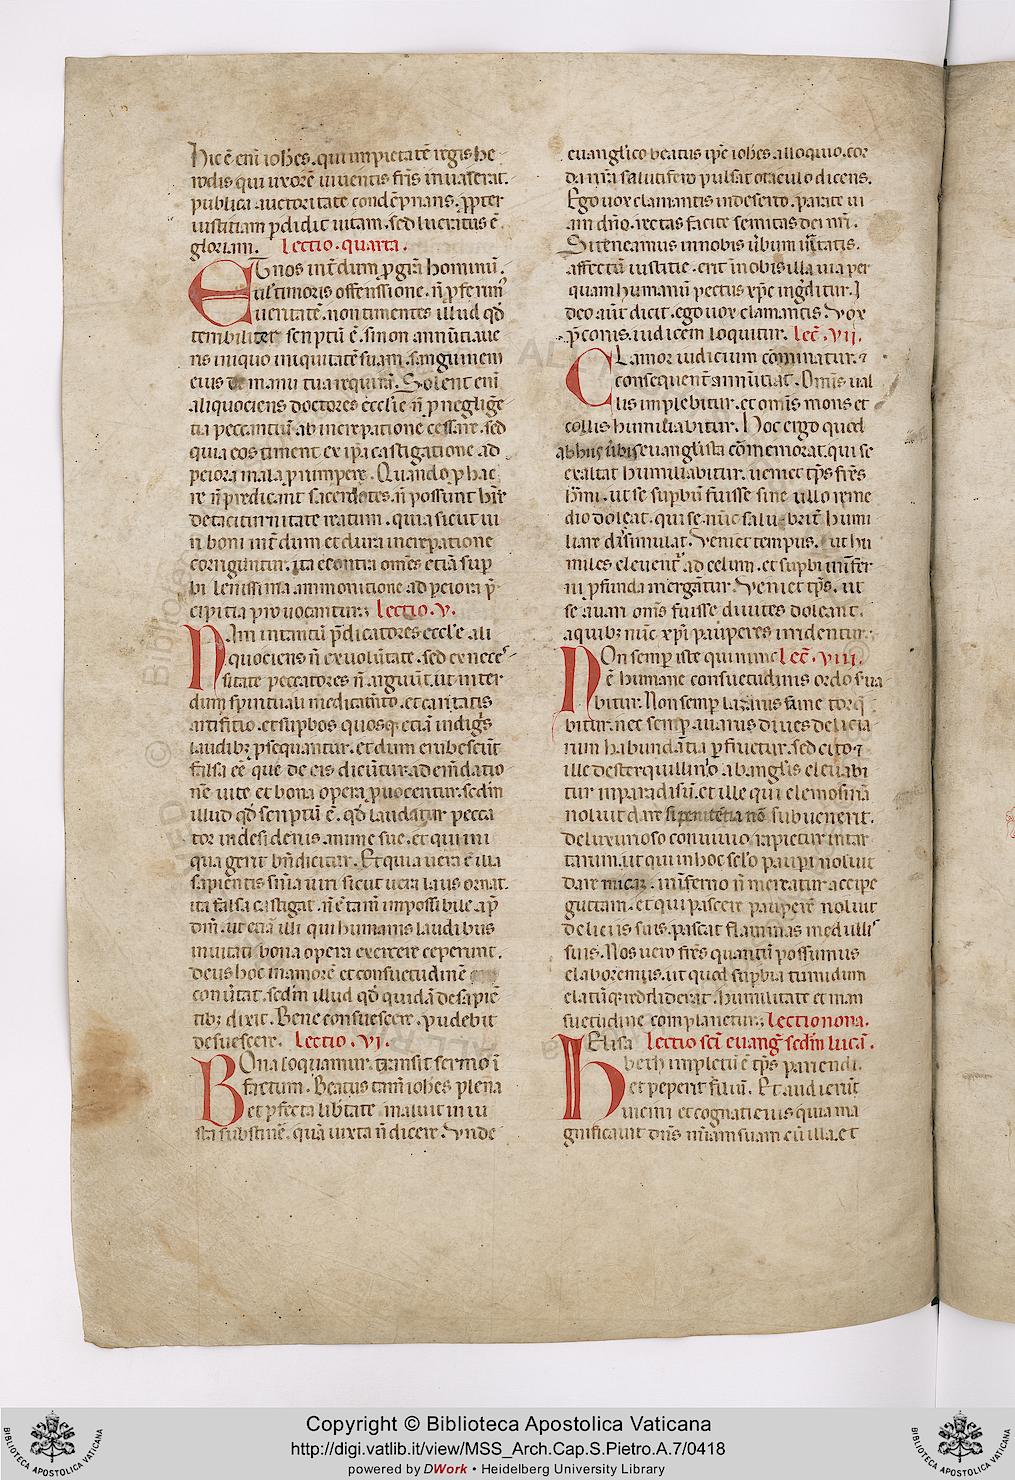 hic ē eni iohēs. qui impietatē regis he
rodis qui uxorē uiuentis fr̄is inuaserat.
publica auctoritate condēpnans. ꝓpter
iustitiam ꝑdidit uitam. sed lucratus ē
gloriam. Lectio. quarta.
ET nos int̄dum ꝑ gr̄a hominū.
uel timoris offenssione. n̄ p̄ferimꝰ
ueritatē. non timentes illud qd̄
terribiliter scriptū ē. si non annūtiaue
ris iniquo iniquitatē suam. sanguinem
eius de manu tua requirā. Solent eni
aliquociens doctores eccl'ie n̄ ꝑ negligē
tia peccantiū ab increpatione cessare. sed
quia eos timent ex ipsa castigatione ad
peiora mala prumpere. Quando ꝑ hac
re n̄ predicant sacerdotes. n̄ possunt hr̄e
de taciturnitate reatum. quia sicut ui
ri boni int̄dum et dura increpatione
corriguntur. ita econtra om̄s etiā sup
bi lenissima ammonitione ad peiora p̄
cipitia prouocantur; Lectio. V.
Nam intantū p̄dicatores eccl'e ali
quociens n̄ ex uolūtate. sed ex necesꝰ
sitate peccatores n̄ arguūt. ut inter
dum spirituali medicam̄to. et caritatis
artifitio. et supbos quosqꝫ etiā indigīs
laudibꝫ ꝓsequantur. et dum erubescūt
falsa eē que de eis dicūtur. ad em̄datio
nē uite et bona opera ꝓuocentur. sedm̄
illud qd̄ scriptū ē. qd̄ laudatur pecca
tor in desideriis anime sue. et qui ini
qua gerit bn̄dicitur. Et quia uera ē illa
sapientis sn̄ia uiri sicut uera laus ornat.
ita falsa castigat. n̄ ē tam̄ impossibile ap̄
dm̄. ut etiā illi qui humanis laudibus
inuitati bona opera exercere ceperint.
deus hoc in amorē et consuetudinē
conūtat. sedm̄ illud qd̄ quidā de sapiē
tibꝫ dixit. Bene consuescere. pudebit
desuescere. Lectio. VI.
Bona loquamur. transit sermo ī
factum. Beatus tam̄ iohēs plena
et ꝑfecta lib̄tate. maluit in iu
sta substinē. quā iuxta n̄ dicere. Vnde
euanglico beatus ipē iohēs alloquio. cor
da nr̄a salutifero pulsat oraculo dicens.
Ego uox clamantis in deserto. parate ui
am dn̄o. rectas facite semitas dei nr̄i.
Si teneamus in nobis ūbum ūitatis.
affectū iustitie. erit in nobis illa uia per
quam humanū pectus xp̄c ingditur. I
deo aūt dicit. ego uox clamantis Vox
p̄conis. iudicem loquitur. lec̄. VII.
Clamor iudicium cōminatur. ⁊
consequent̄ annūtiat. Omīs ual
lis implebitur. et omīs mons et
collis humiliabitur. Hoc ergo quod
ab huiꝰ ūbis euanglista cōmemorat. qui se
exaltat humiliabitur. ueniet tp̄s fr̄es
kr̄mi. ut se supbū fuisse sine ullo reme
dio doleat. qui se nūc salubrit̄ humi
liare dissimulat. Veniet tempus. ut hu
miles eleuent̄ ad celum. et supbi inīfer
ni ꝓfunda mergātur. Veniet tp̄s. ut
se auari om̄s fuisse diuites doleant.
a quibꝫ nūc xp̄i pauperes irridentur.
Non semꝑ iste qui nunc lec̄. VIII.
ē humane consuetudinis ordo s'ua
bitur. Non semꝑ lazarus fame torq̄
bitur. nec semꝑ auarus diues delicia
rum habundātia ꝑfruetur. sed cito ⁊
ille de sterquillin'o ab anglis eleuabi
tur in paradisū. et ille qui elemosinā
noluit dare si penitētia nō subuenerit.
de luxurioso conuiuio rapietur in tar
tarum. ut qui in hoc sel'o pauꝑi noluit
dare micaꝫ. inīferno n̄ mereatur accipe
guttam. et qui pascere pauperē noluit
deliciis suis. pascat flammas medullisꝰ
suis. Nos uero fr̄es quantū possumus
elaboremus. ut quod supbia tumidum
elatūqꝫ reddiderat. humilitate et man
suetudine complanetur; Lectio nona.
Elisa Lectio scī euanḡ. sedm̄ lucā.
beth impletū ē tp̄s pariendi.
et peperit filiū. Et audierūt
uicini et cognati eius quia ma
gnificauit dn̄s miām suam cū illa. et
Copyright © Biblioteca Apostolica Vaticana
http://digi.vatlib.it/view/MSS_Arch.Cap.S.Pietro.A.7/0418
powered by DWork • Heidelberg University Library
BIBLIOTECA APOSTOLICA VATICANA
BIBLIOTECA APOSTOLICA VATICANA